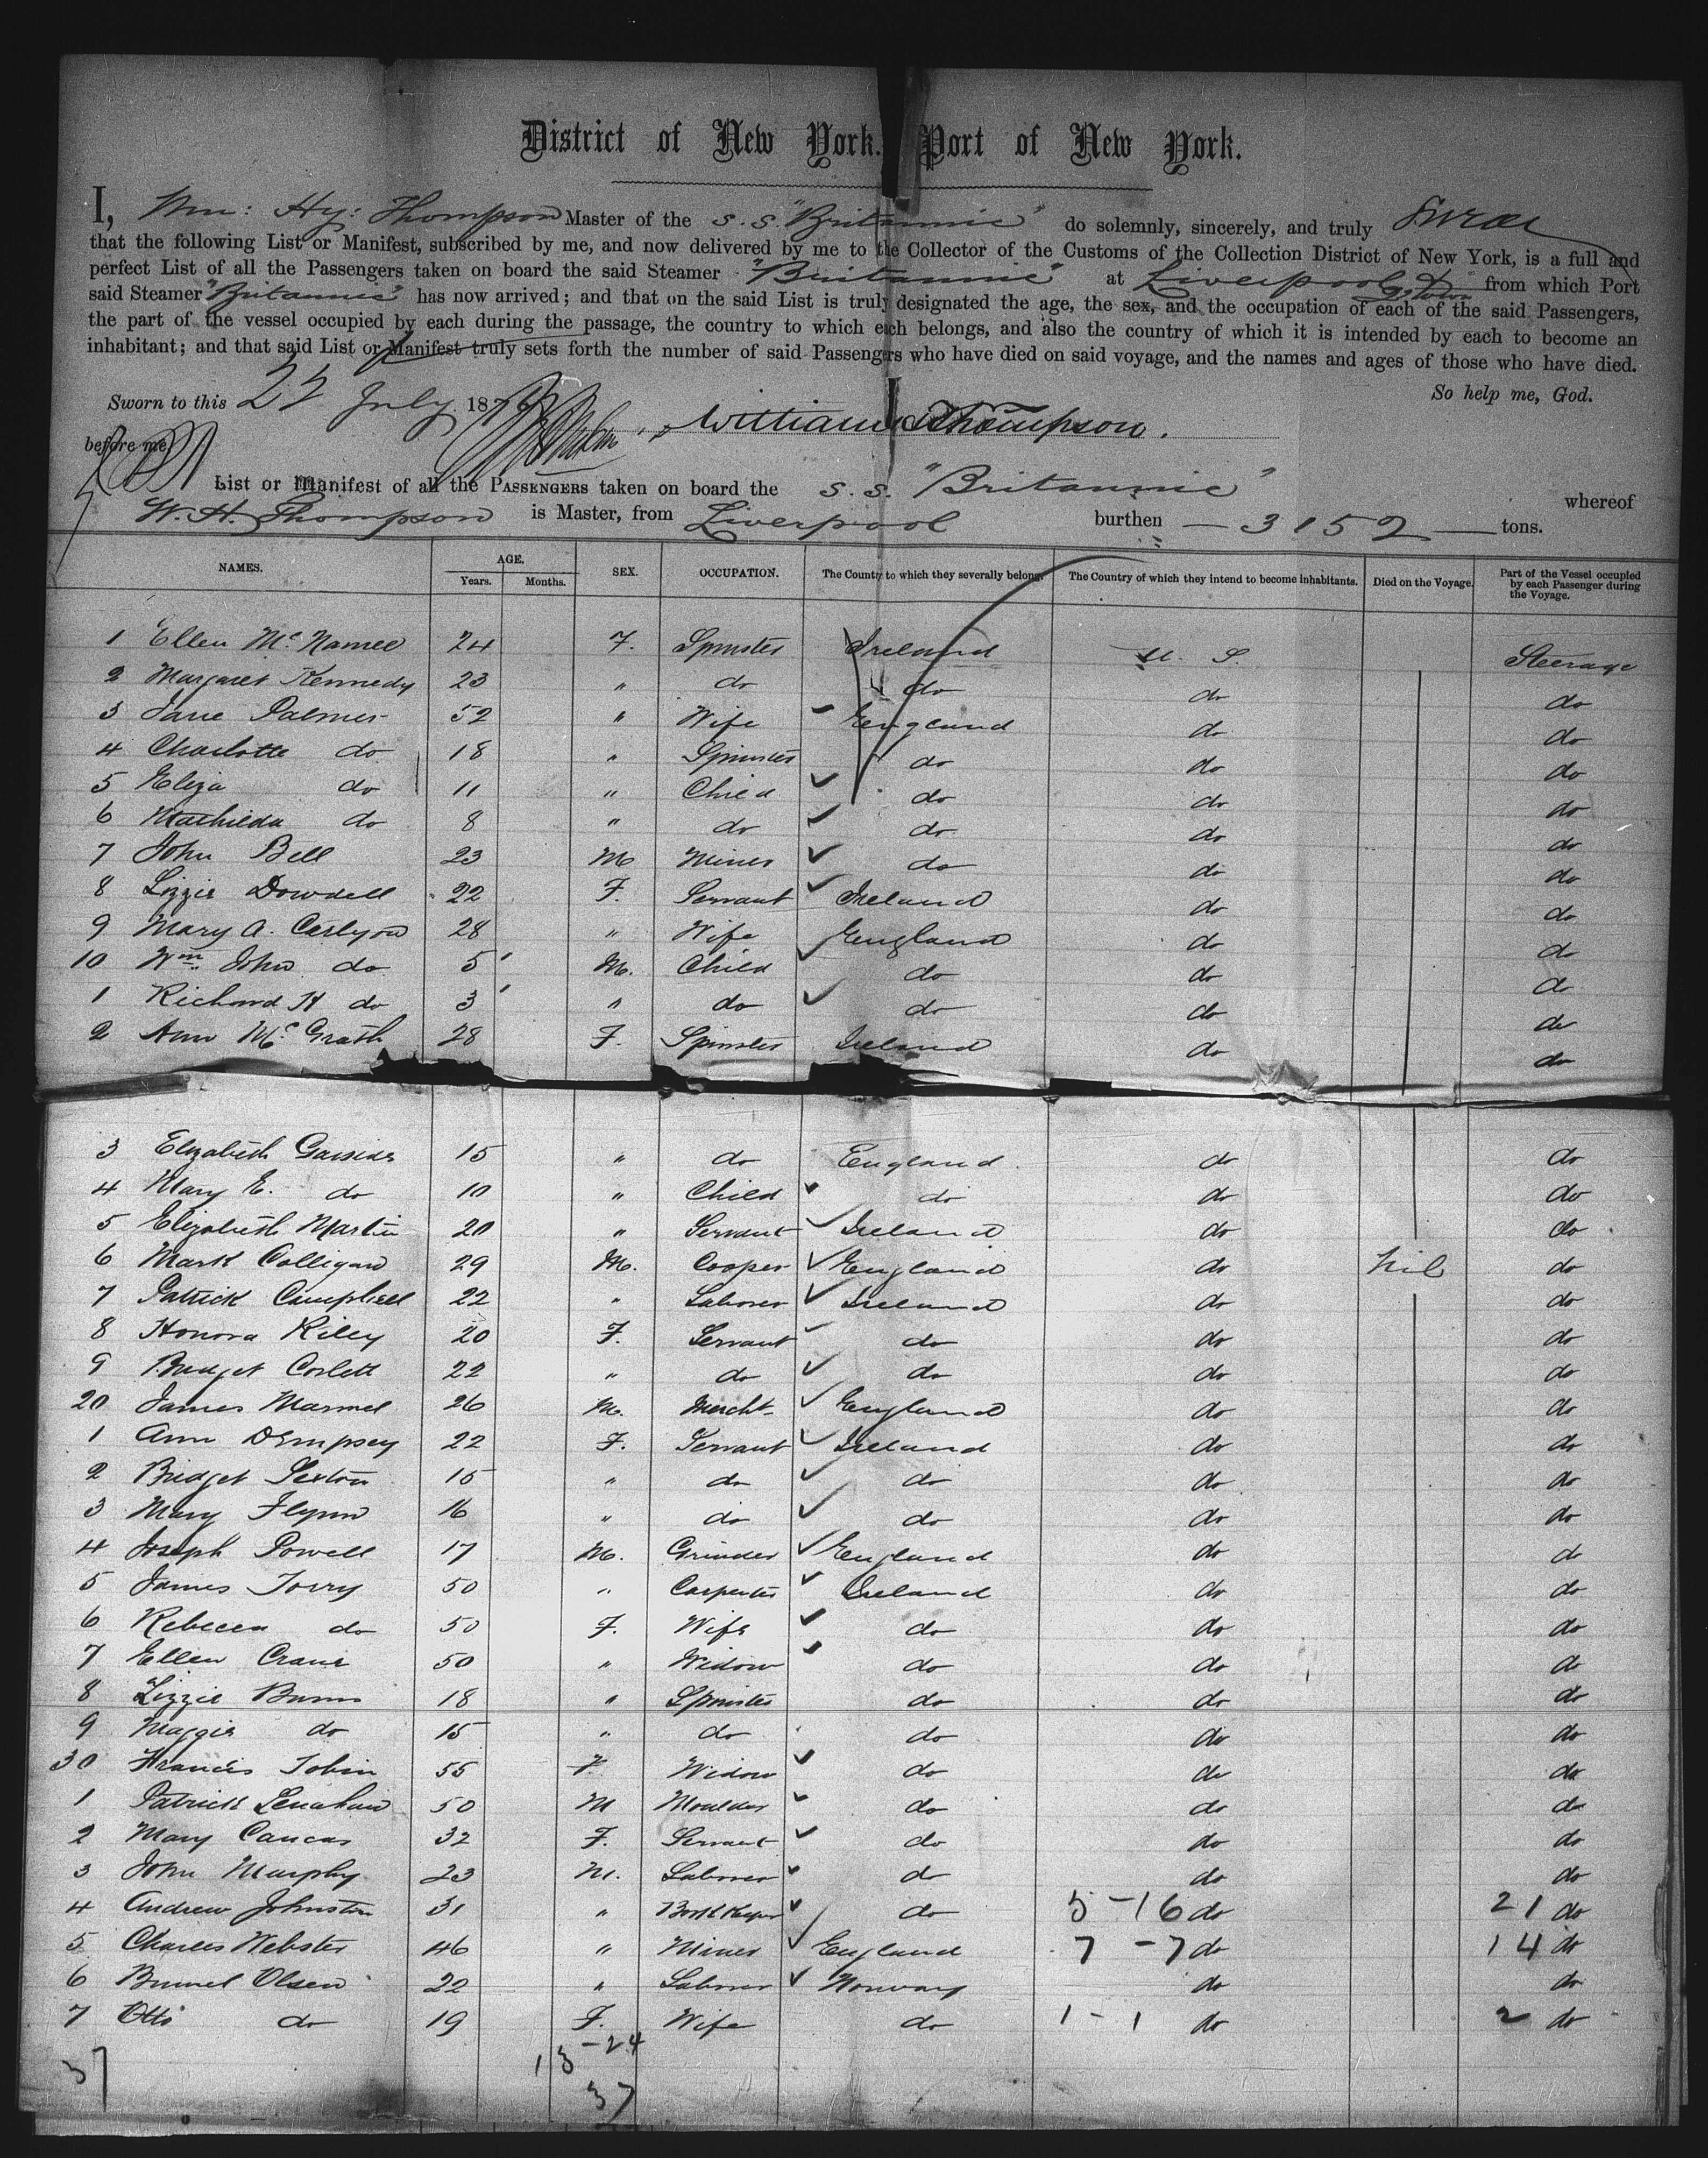 District of New York. Port of New York.
I, Wm: Hy: Thompson Master of the s.s. "Britannic" do solemnly, sincerely, and truly Swear
that the following List or Manifest, subscribed by me, and now delivered by me to the Collector of the Customs of the Collection District of New York, is a full and
perfect List of all the Passengers taken on board the said Steamer "Britannic" at Liverpool from which Port
said Steamer "Britannic" has now arrived; and that on the said List is truly designated the age, the sex, and the occupation of each of the said Passengers,
the part of the vessel occupied by each during the passage, the country to which each belongs, and also the country of which it is intended by each to become an
inhabitant; and that said List or Manifest truly sets forth the number of said Passengers who have died on said voyage, and the names and ages of those who have died.
So help me, God.
Sworn to this 22 July 1876
William H Thompson.
before me
List or Manifest of all the PASSENGERS taken on board the s.s. "Britannic" whereof
W. H. Thompson is Master, from Liverpool burthen — 3152 — tons.
NAMES. AGE. Years. Months. SEX. OCCUPATION. The Country to which they severally belong. The Country of which they intend to become inhabitants. Died on the Voyage. Part of the Vessel occupied by each Passenger during the Voyage.
1 Ellen McNamee 24 F. Spinster Ireland U. S. Steerage
2 Margaret Kennedy 23 " do do do do
3 Jane Palmer 52 " Wife England do do
4 Charlotte do 18 " Spinster do do do
5 Eliza do 11 " Child do do do
6 Mathilda do 8 " do do do do
7 John Bell 23 M Miner do do do
8 Lizzie Dowdell 22 F. Servant Ireland do do
9 Mary A. Carlyon 28 " Wife England do do
10 Wm. John do 5 M. Child do do do
1 Richard H do 3 " do do do do
2 Ann McGrath 28 F. Spinster Ireland do do
3 Elizabeth Garside 15 " do England do do
4 Mary E. do 10 " Child do do do
5 Elizabeth Martin 20 " Servant Ireland do do
6 Mark Colligan 29 M. Cooper England do Nil do
7 Patrick Campbell 22 " Laborer Ireland do do
8 Honora Riley 20 F. Servant do do do
9 Bridget Corlett 22 " do do do do
20 James Marmel 26 M. Mercht. England do do
1 Ann Dempsey 22 F. Servant Ireland do do
2 Bridget Sexton 15 " do do do do
3 Mary Flynn 16 " do do do do
4 Joseph Powell 17 M. Grinder England do do
5 James Torry 50 " Carpenter Ireland do do
6 Rebecca do 50 F. Wife do do do
7 Ellen Crane 50 " Widow do do do
8 Lizzie Burns 18 " Spinster do do do
9 Maggie do 15 " do do do do
30 Francis Tobin 55 F. Widow do do do
1 Patrick Lenahan 50 M Moulder do do do
2 Mary Caucas 32 F. Servant do do do
3 John Murphy 23 M. Laborer do do do
4 Andrew Johnston 31 " Book Keeper do 5 - 16 do 21 do
5 Charles Webster 46 " Miner England 7 - 7 do 14 do
6 Olsen 22 " Laborer Norway do do
7 Otto do 19 F. Wife do 1 - 1 do 2 do
37 13 - 24
37